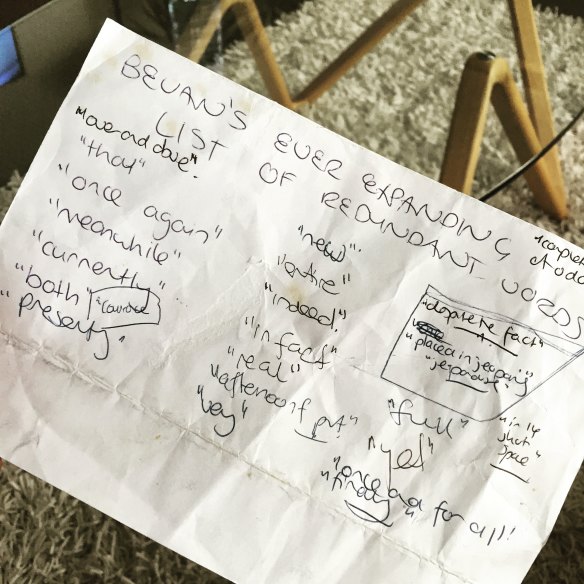 BEVAN'S EVER EXPANDING
LIST OF REDUNDANT WORDS
"over and above"
"that"
"once again"
"meanwhile"
"currently"
"both"
"presently"
"new"
"entire"
"indeed"
"in fact"
"real"
"afternoon"
"very"
"despite the fact"
"placed in jeopardy"
"jeopardise"
"full"
"yet"
"once and for all"
"finally"
"in
short
space"